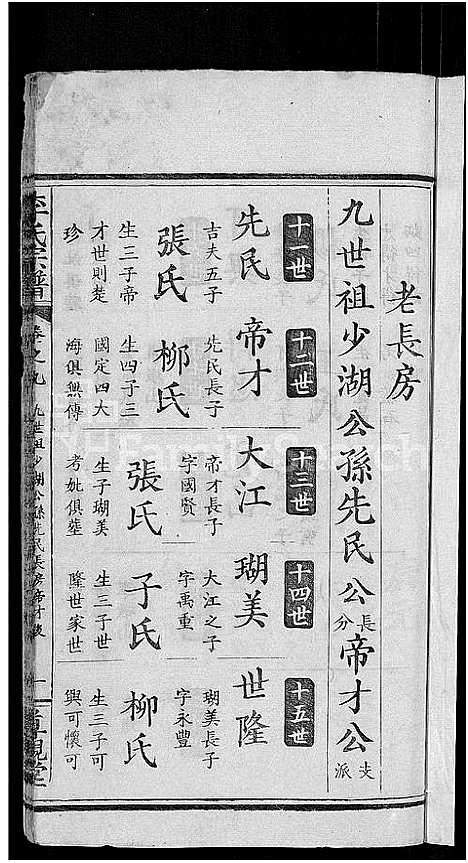 老長房
九世祖少湖公孫先民公長分帝才公支派
十一世
先民
吉夫五子
張氏
生三子帝
才世則楚
珍
十二世
帝才
先民長子
柳氏
生四子三
國定四大
海俱興傳
十三世
大江
帝才長子
字國賢
張氏
生子瑚美
考妣俱塟
十四世
瑚美
大江之子
字禹重
于氏
生三子世
隆世家世
十五世
世隆
瑚美長子
字永豐
柳氏
生三子可
興可懷可
李氏宗譜
卷之九
九世祖少湖公孫先民長房帝才支
一